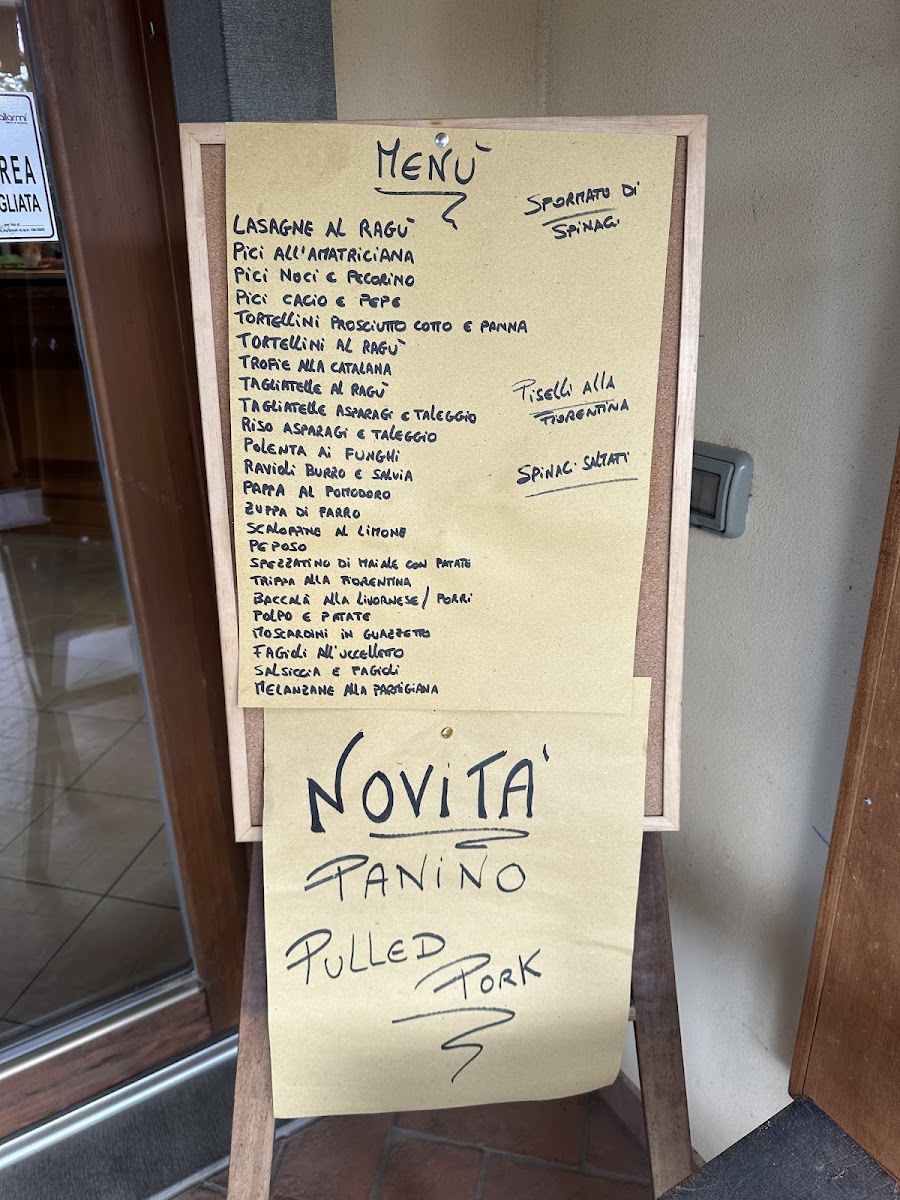 allarmi
REA
GLIATA
MENÙ
LASAGNE AL RAGÙ
PICI ALL'AMATRICIANA
PICI NOCI E PECORINO
PICI CACIO E PEPE
TORTELLINI PROSCIUTTO COTTO E PANNA
TORTELLINI AL RAGÙ
TROFIE ALLA CATALANA
TAGLIATELLE AL RAGÙ
TAGLIATELLE ASPARAGI E TALEGGIO
RISO ASPARAGI E TALEGGIO
POLENTA AI FUNGHI
RAVIOLI BURRO E SALVIA
PAPPA AL POMODORO
ZUPPA DI FARRO
SCALOPPINE AL LIMONE
PEPOSO
SPEZZATINO DI MAIALE CON PATATE
TRIPPA ALLA FIORENTINA
BACCALÀ ALLA LIVORNESE / PORRI
POLPO E PATATE
MOSCARDINI IN GUAZZETTO
FAGIOLI ALL'UCCELLETTO
SALSICCIA E FAGIOLI
MELANZANE ALLA PARMIGIANA
SFORMATO DI
SPINACI
PISELLI ALLA
FIORENTINA
SPINACI SALTATI
NOVITA'
PANINO
PULLED
PORK